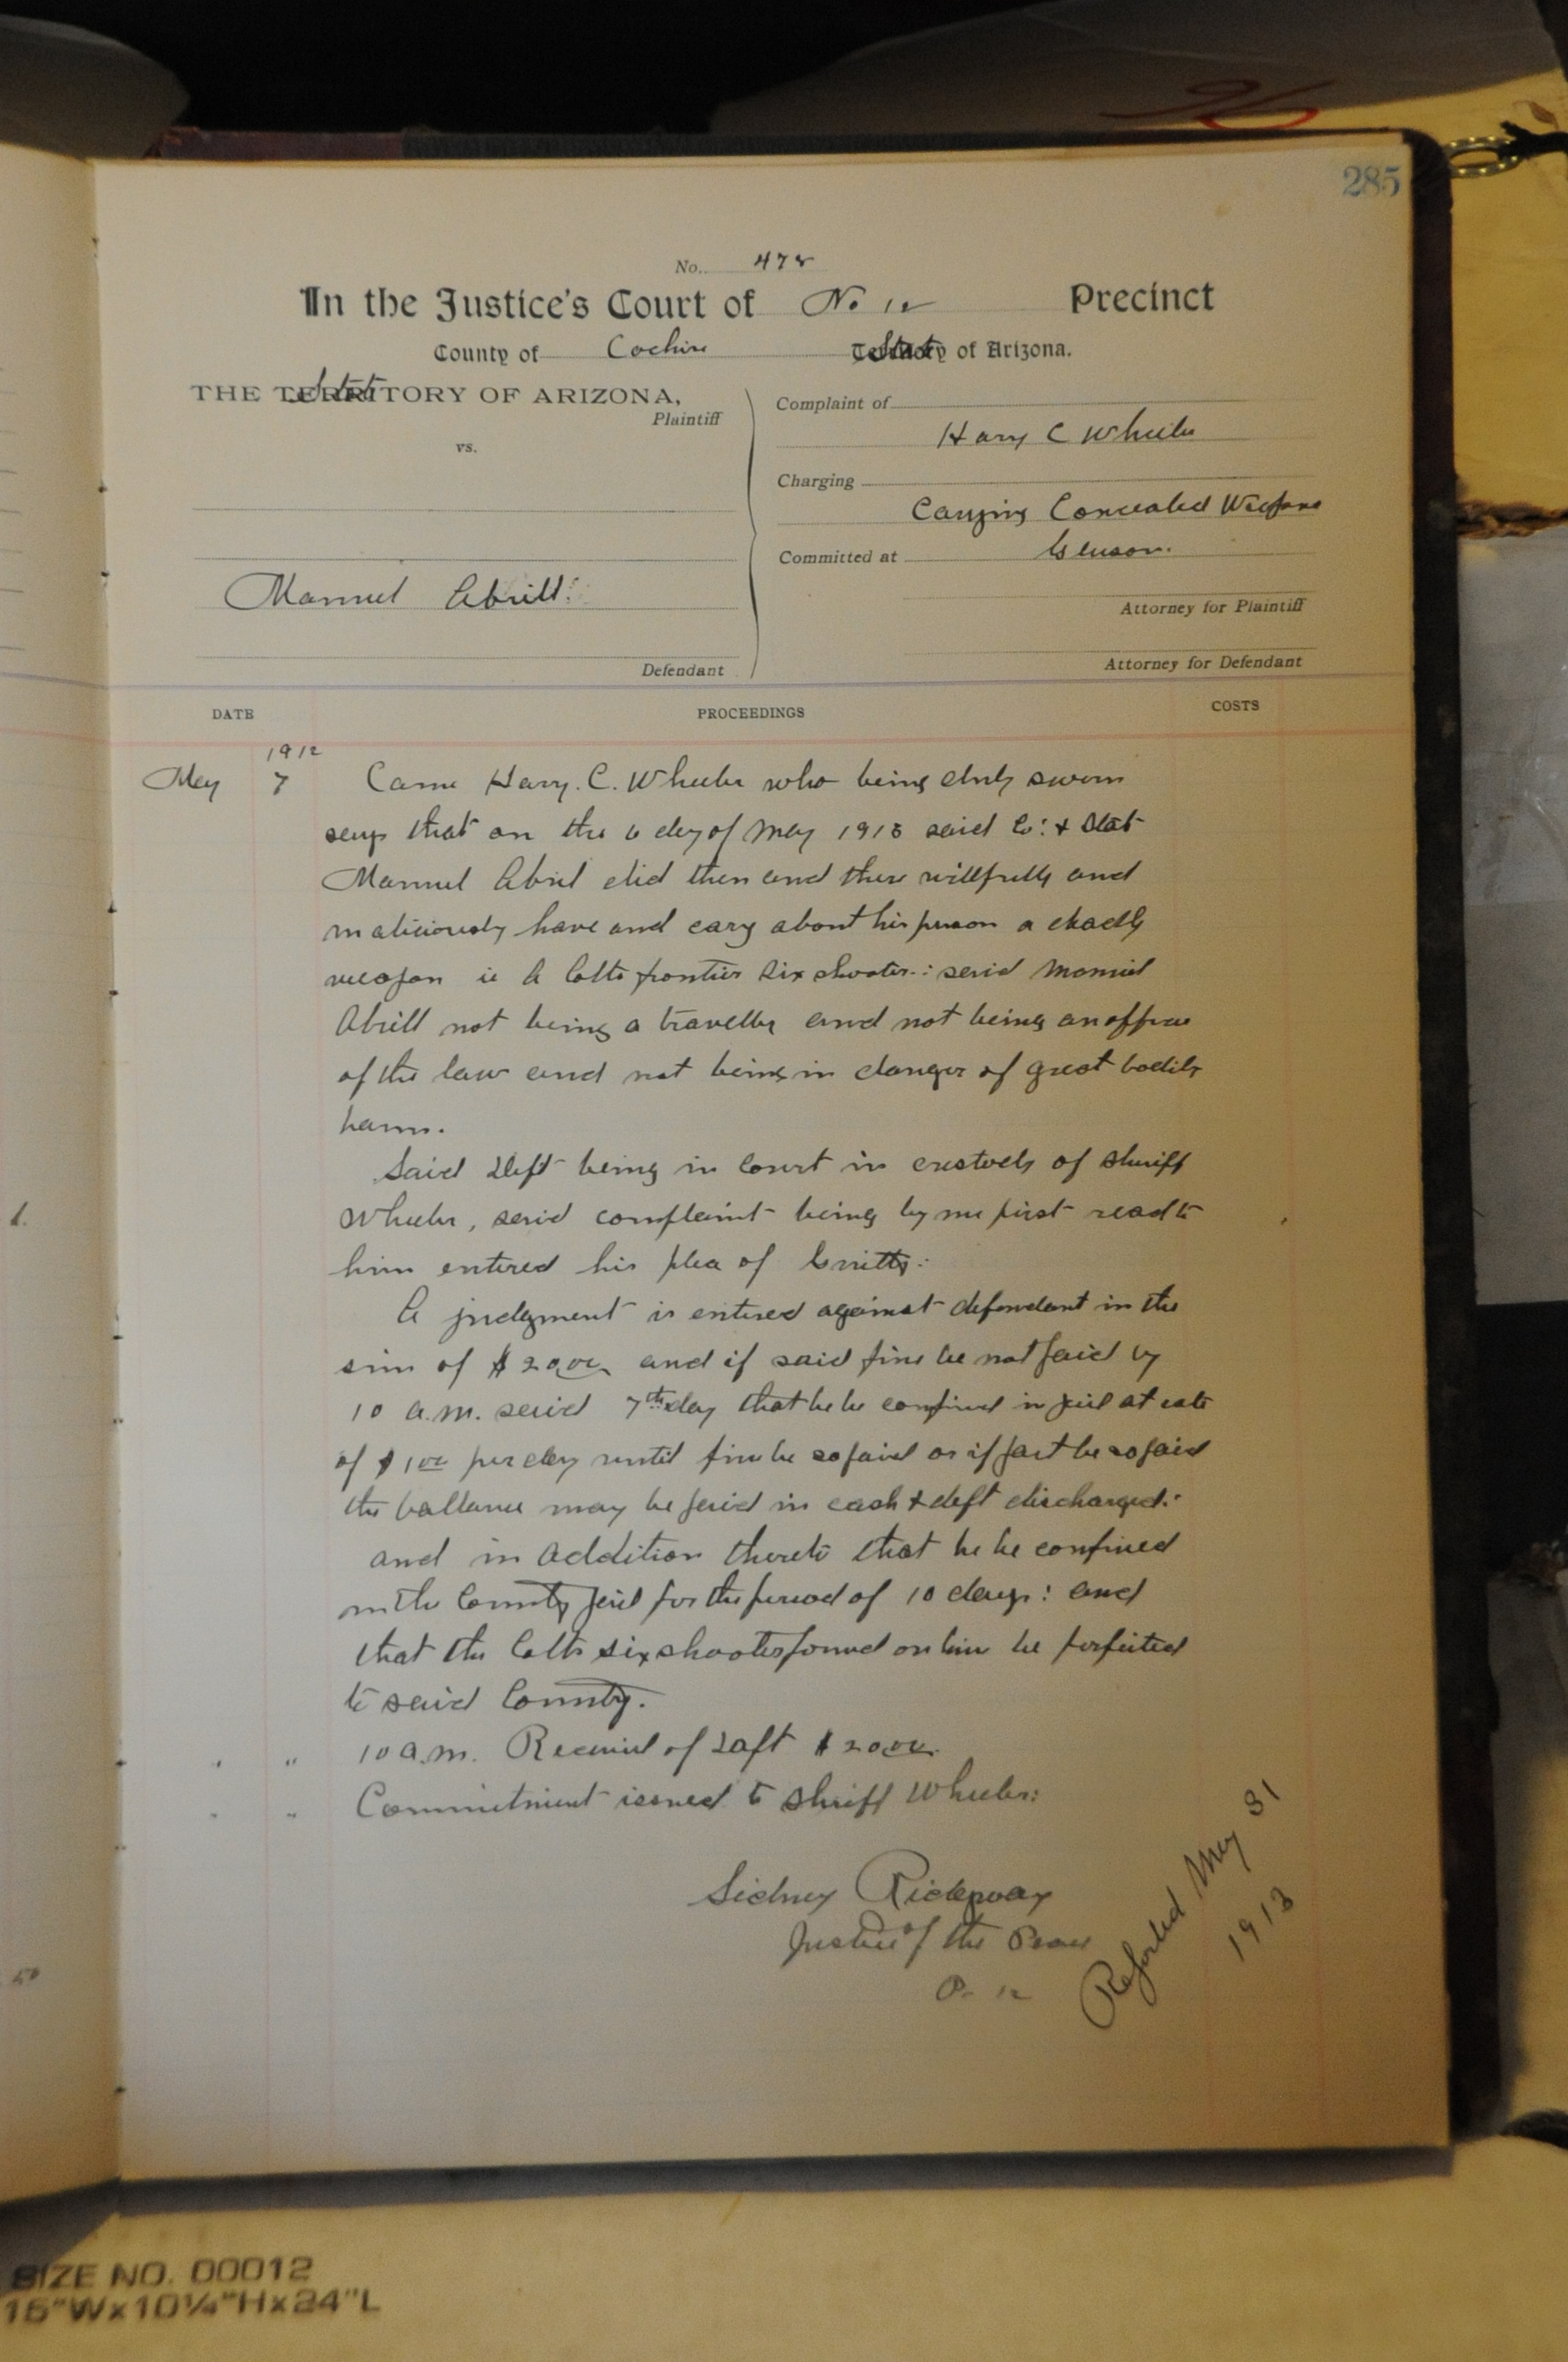 285
No. 478
In the Justice's Court of No 12 Precinct
County of Cochise State of Arizona.
THE State OF ARIZONA,
Plaintiff
vs.
Manuel Abrill:
Defendant
Complaint of
Harry C Wheeler
Charging
Carrying Concealed Weapons
Committed at Gleeson.
Attorney for Plaintiff
Attorney for Defendant
DATE PROCEEDINGS COSTS
1912
May 7 Came Harry. C. Wheeler who being duly sworn
says that on the 6 day of May 1913 said Co: & State
Manuel Abril did then and there willfully and
maliciously have and cary about his person a deadly
weapon ie A Colts frontier Six shooter: said Manuel
Abrill not being a traveller and not being an officer
of the law and not being in danger of great bodily
harm.
Said Deft being in Court in custody of Sheriff
Wheeler, said complaint being by me first read to
him entered his plea of Guilty:
A judgment is entered against defendant in the
sum of $20.00 and if said fine be not paid by
10 a.m. said 7th day that he be confined in jail at rate
of $1.00 per day until fine be so paid or if part be so paid
the ballance may be paid in cash & deft discharged:
and in addition thereto that he be confined
in the County jail for the period of 10 days: and
that the Colts six shooter found on him be forfeited
to said County.
" " 10 a.m. Received of Deft $20.00
" " Commitment issued to Sheriff Wheeler:
Sidney Ridgway
Justice of the Peace
P. 12
Reported May 31
1913
SIZE NO. 00012
16"Wx10¼"Hx24"L